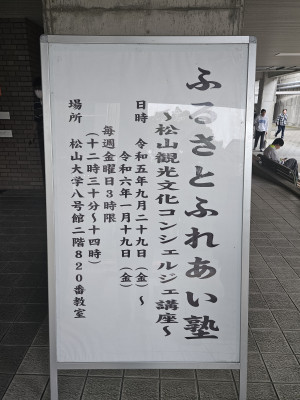 ふるさとふれあい塾
～松山観光文化コンシェルジェ講座～
日時　令和五年九月二十九日（金）～
令和六年一月十九日（金）
毎週金曜日3時限
（十二時三十分～十四時）
場所　松山大学八号館二階820番教室